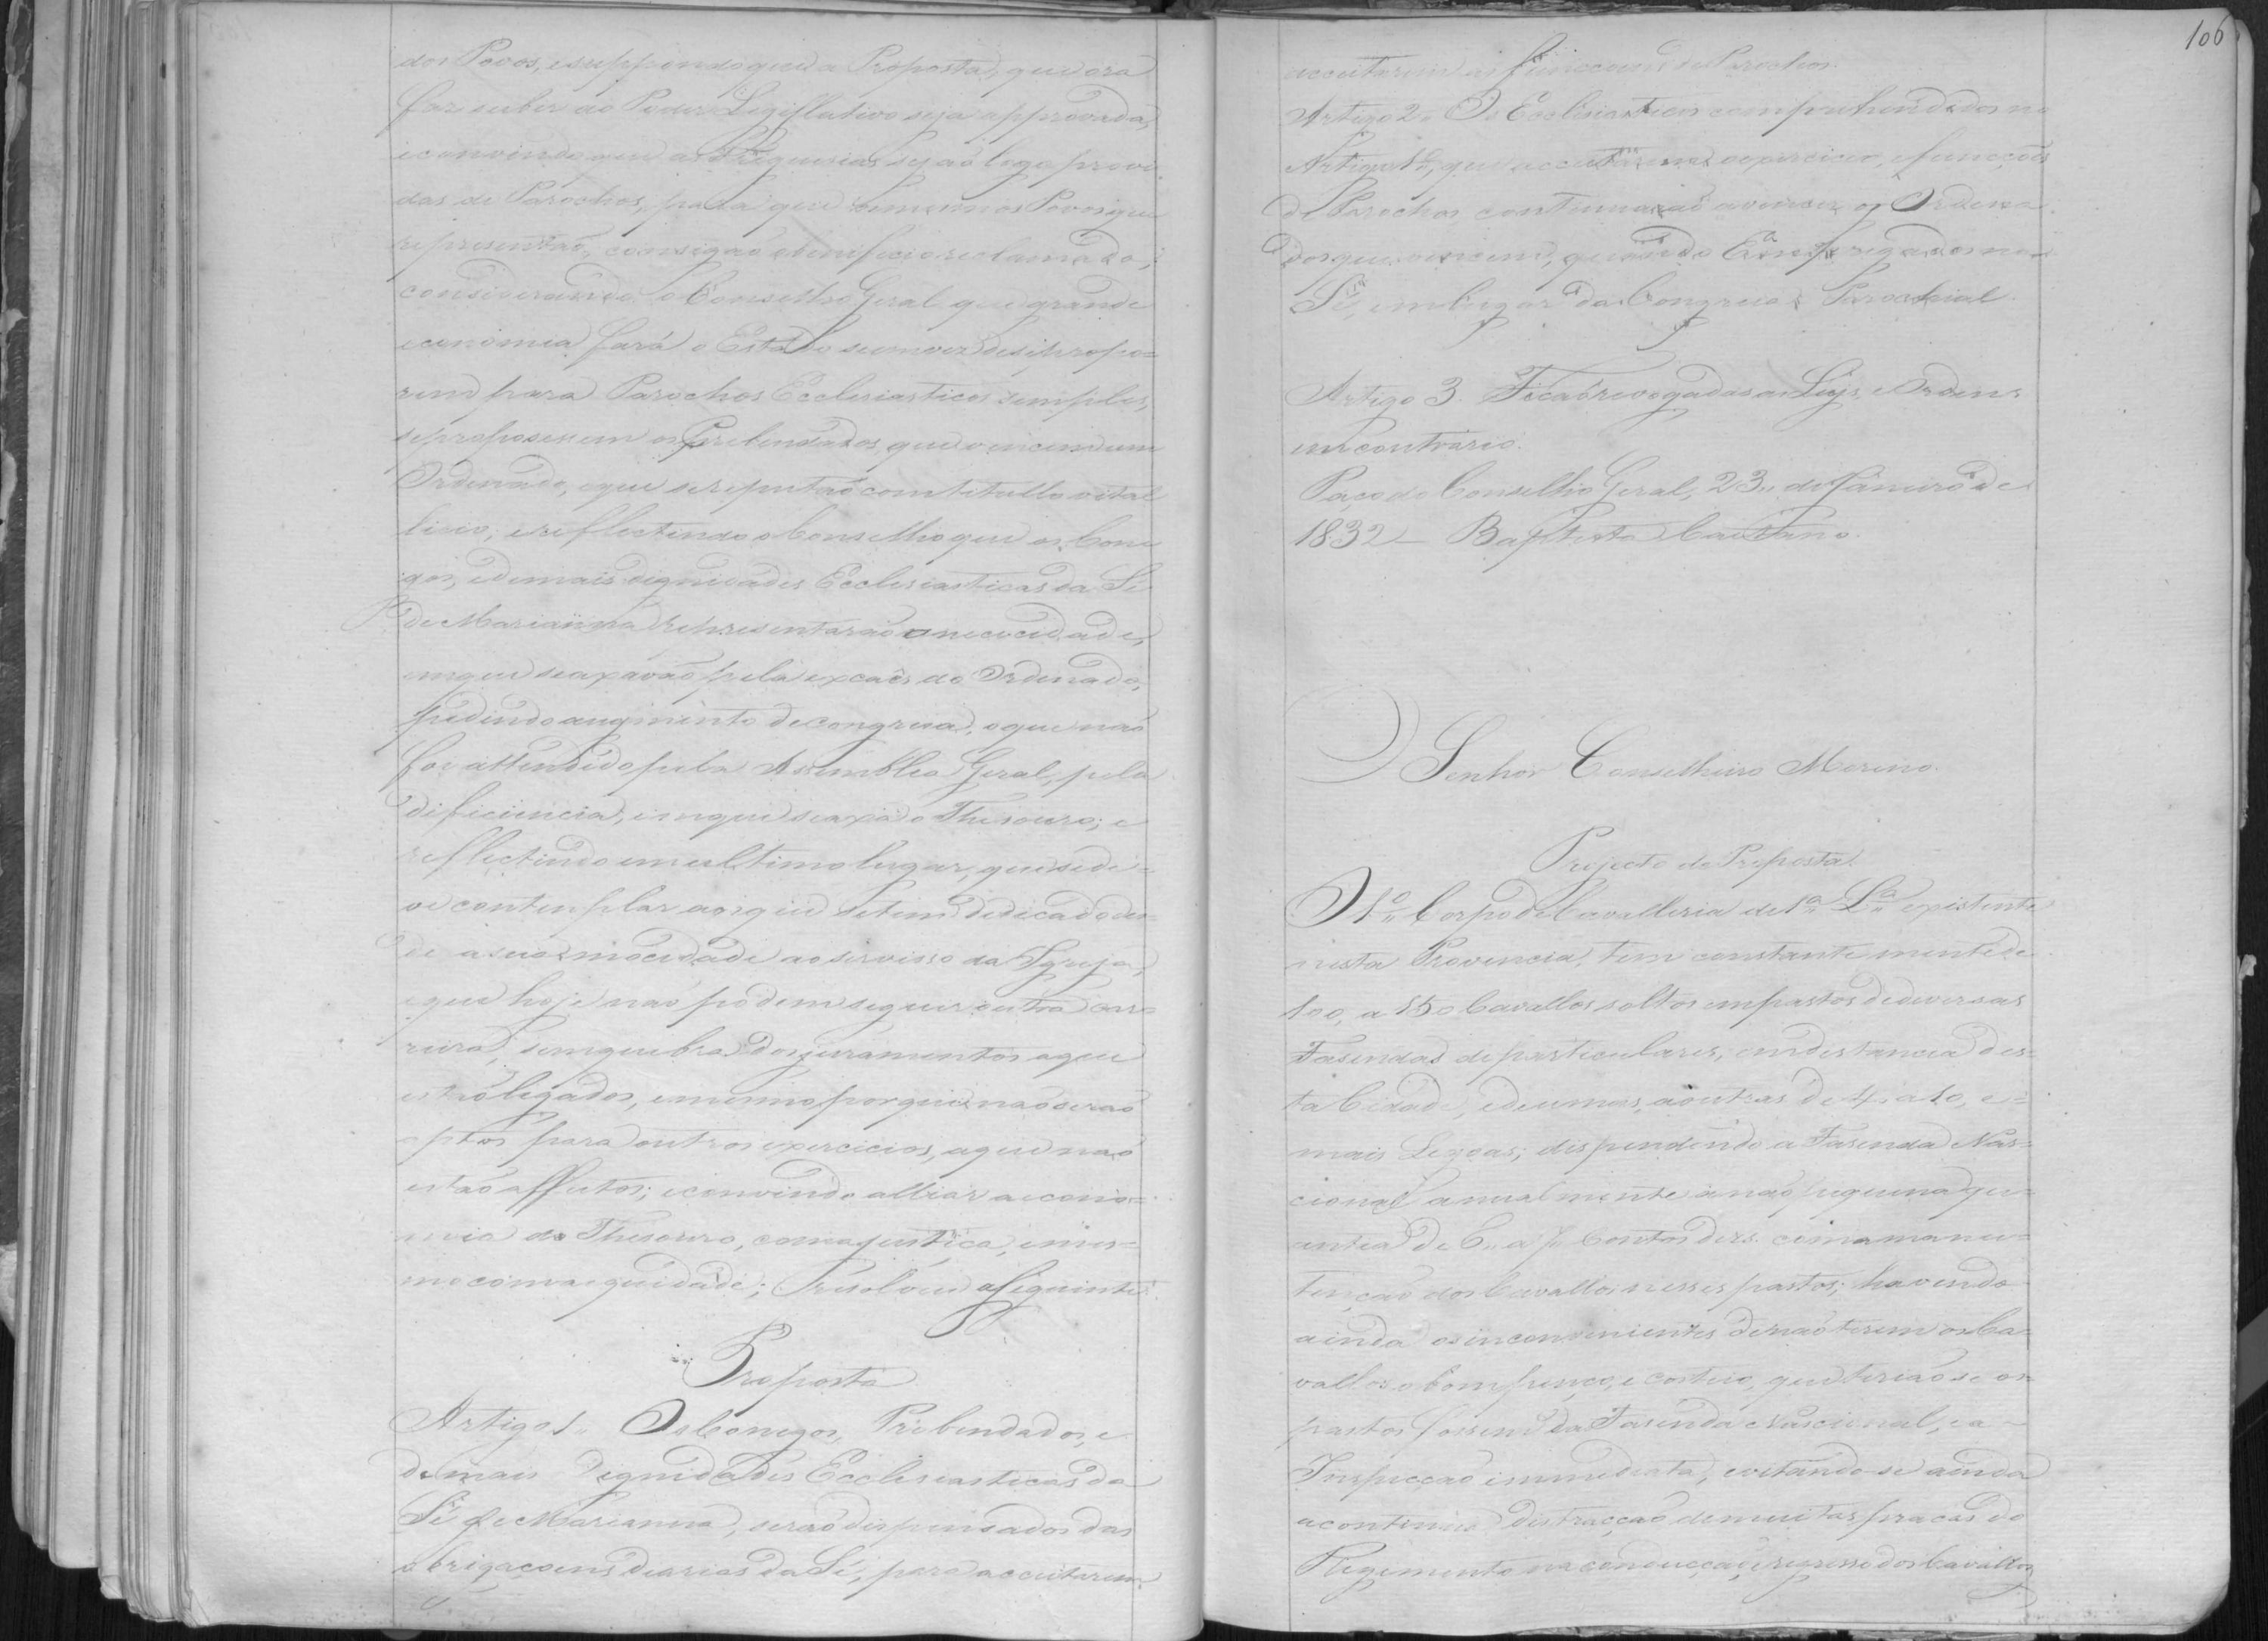 dos Povos, e suppondo que a Proposta, que ora
faz subir ao Poder Legislativo seja approvada,
e convindo que as Freguesias sejaõ logo provi
das de Parochos, para que os mesmos Povos que
representaõ, consigaõ o beneficio reclamado;
considerando o Conselho Geral que grande
economia fará o Estado se em vez de se propo=
rem para Parochos Ecclesiasticos simples,
se proposessem os Prebendados, que vencem um
Ordenado, e que se reputaõ com titullo vital
licio; e reflectindo o Conselho que os Cone
gos, e demais dignidades Ecclesiasticas da Sé
de Marianna representaraõ a necocidade,
em que se axavaõ pela excaês do Ordenado,
pedindo augmento de congrua, o que naõ
foi attendido pela Assemblea Geral, pela
dificiencia, em que se axa o Thesouro; e
reflectindo em ultimo lugar, que se de=
ve contemplar aos que se tem dedicado des=
de a sua mocidade ao servisso da Igreja,
e que hoje naõ podem seguir outra car=
reira, sem quebra dos juramentos a que
estaõ ligados, e mesmo porque naõ seraõ
aptos para outros exercicios, a que naõ
estaõ affectos; e convindo alliar a econo=
mia do Thesouro, com a justiça, e mes=
mo com a equidade; Resolveu a seguinte
Proposta
Artigo 1.. Os Conegos, Prebendados, e
demais Dignidades Ecclesiasticas da
Sé de Marianna, seraõ dispensados das
obrigacoens diarias da Sé, para acceitarem
106
acceitarem as funccoens de Parochos.
Artigo 2.. Os Ecclesiasticos comprehendidos no
Artigo 1.., que acceitarem o exercicio, e funcções
de Parochos continuaraõ a vencer os Ordena
dos que vencem, quando Empregados na
Sé, em lugar da Congrua Parochial
Artigo 3. Ficaõ revogadas as Leys, e Ordens
em contrario.
Paço do Conselho Geral, 23.. de Janeiro de
1832 _ Baptista Caetano.
Senhor Conselheiro Moreno.
Projecto de Proposta.
O 1.º Corpo de Cavalleria de 1.ª L.ª existente
nesta Provincia, tem constantemente de
100, a 150 Cavallos soltos em pastos de diversas
Fasendas de particulares, em distancia des=
ta Cidade, e de umas, a outras de 4, a 10, e=
mais Legoas; dispendendo a Fasenda Nas=
cional anualmente a naõ piquena qu=
antia de 6.. a 7.. Contos de rs. com a manu=
tençaõ dos Cavallos nesses pastos; havendo
ainda os inconvenientes de naõ terem os Ca=
vallos o bom penço, e costeio, que teriaõ se os
pastos fossem da Fasenda Nascional, e a
Inspecçaõ immediata, evitando-se ainda
a continua distracçaõ de muitas praças do
Regimento na conducçaõ, e regresse dos Cavallos